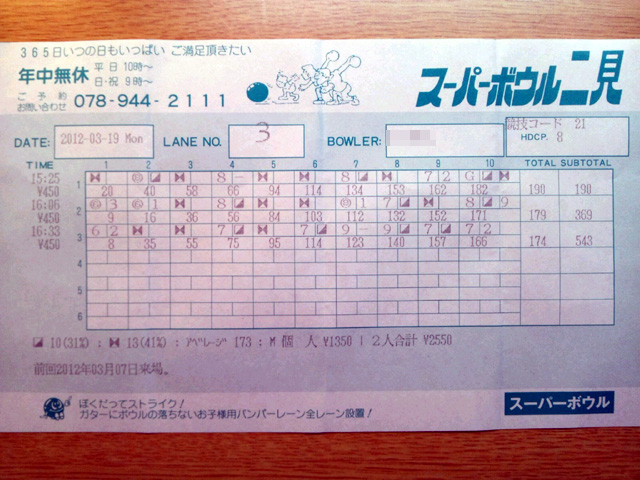 365日いつの日もいっぱい ご満足頂きたい
年中無休 平日10時〜 日・祝9時〜
ご予約 お問い合わせ 078-944-2111
スーパーボウル二見
DATE: 2012-03-19 Mon LANE NO. 3 BOWLER: 競技コード 21 HDCP. 8
TIME 1 2 3 4 5 6 7 8 9 10 TOTAL SUBTOTAL
15:25 8 - 8 7 2 G
¥450 1 20 40 58 66 94 114 134 153 162 182 190 190
16:06 3 1 8 1 7 8 9
¥450 2 9 16 36 56 84 103 112 132 152 171 179 369
16:33 6 2 7 7 9 - 9 7 7 2
¥450 3 8 35 55 75 95 114 123 140 157 166 174 543
4
5
6
10(31%) : 13(41%) : ｱﾍﾞﾚｰｼﾞ 173 : M 個 人 ¥1350 | 2人合計 ¥2550
前回2012年03月07日来場。
ぼくだってストライク!
ガターにボウルの落ちないお子様用バンパーレーン全レーン設置!
スーパーボウル